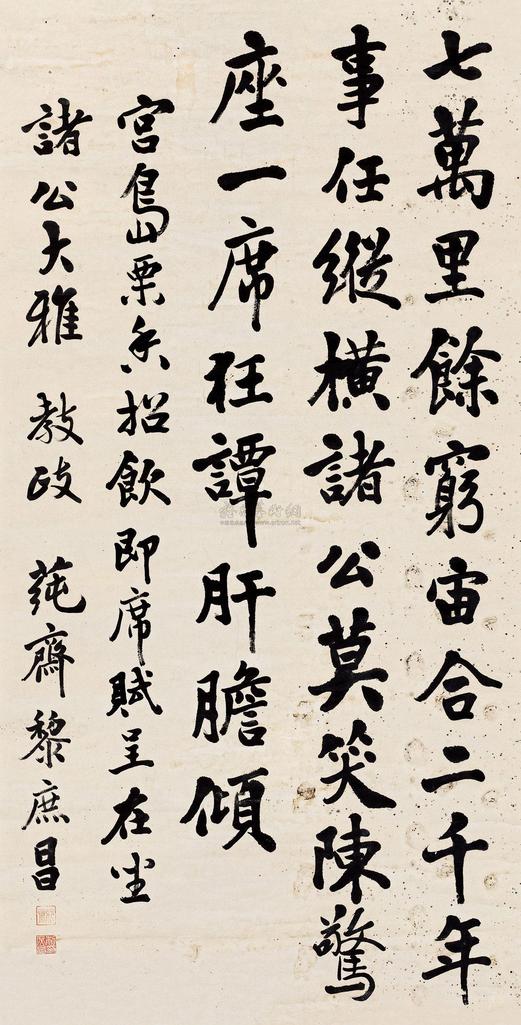 七萬里餘窮宙合二千年
事任縱橫諸公莫笑陳驚
座一席狂譚肝膽傾
宮島栗香招飲即席賦呈在坐
諸公大雅 教政 蒓齋黎庶昌